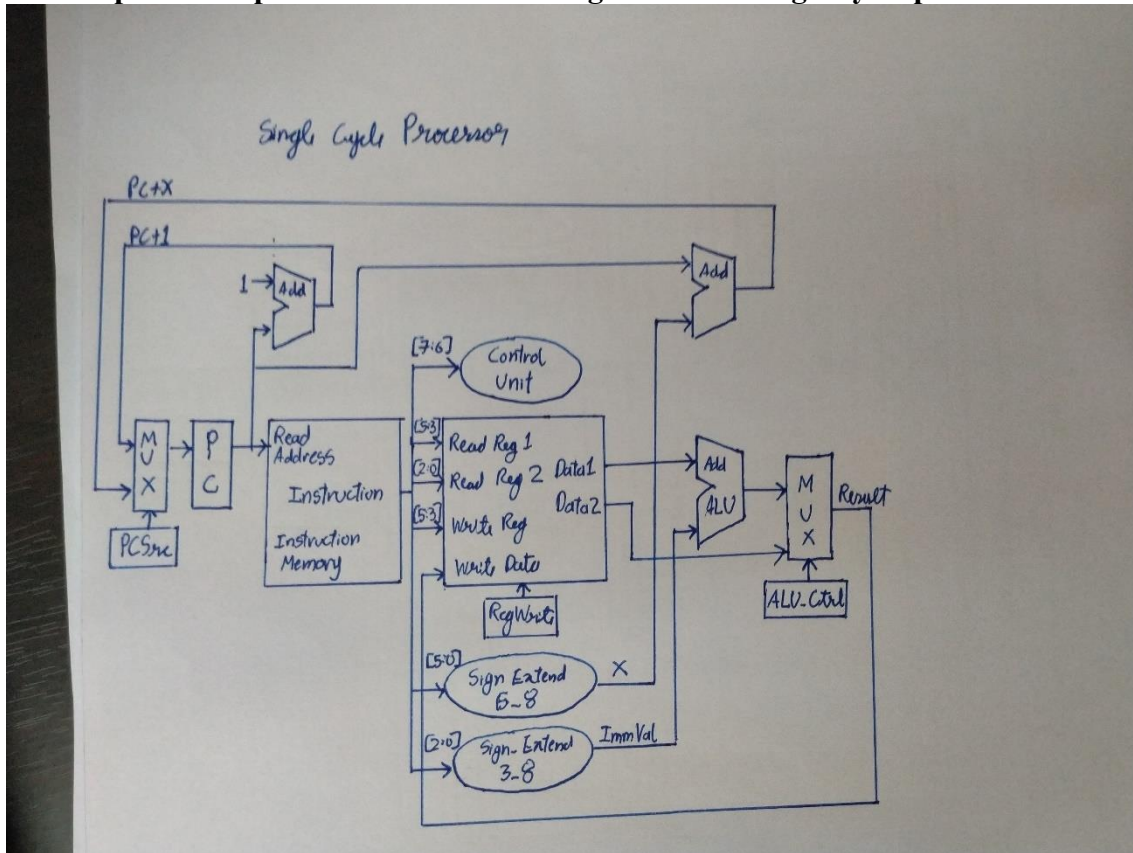 Single Cycle Processor
PC+X
PC+1
1
Add
Add
[7:6]
Control
Unit
[5:3]
[2:0]
[5:3]
MUX
PC
Read
Address
Instruction
Instruction
Memory
Read Reg 1
Read Reg 2
Write Reg
Write Data
Data1
Data2
Add
ALU
MUX
Result
PCSrc
RegWrite
ALU_Ctrl
[5:0]
Sign Extend
6-8
X
[2:0]
Sign_Extend
3-8
ImmVal